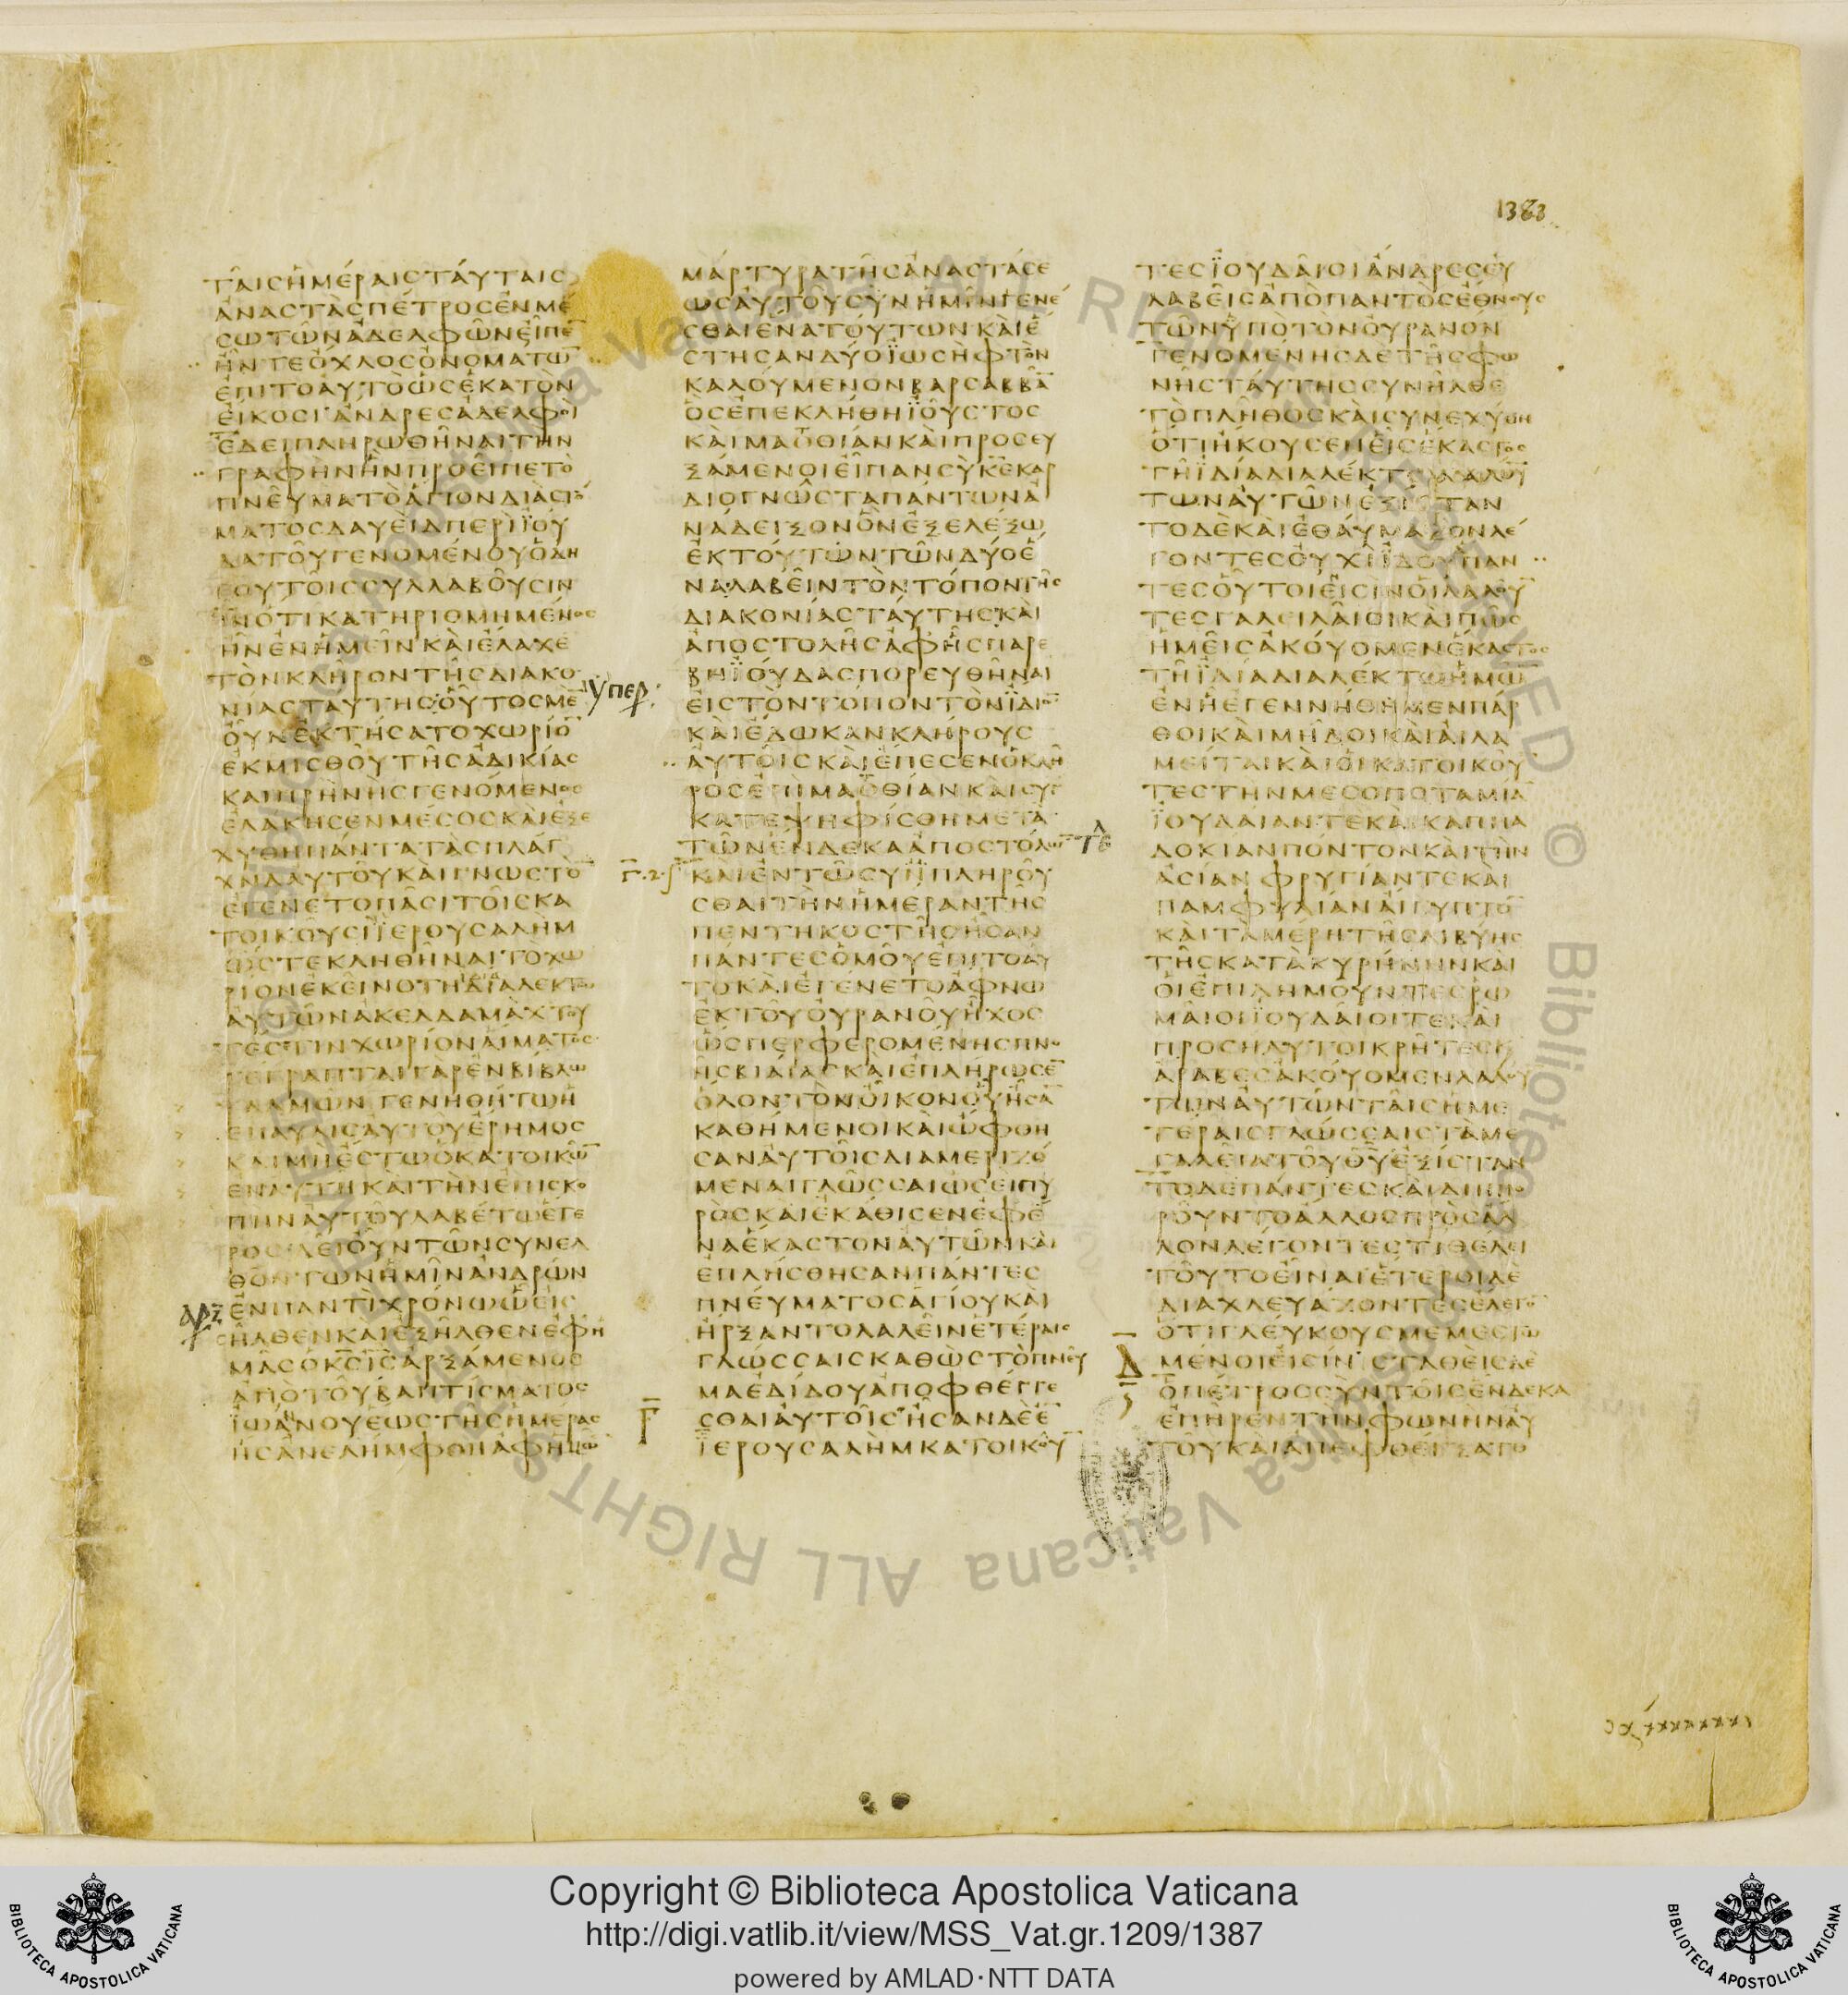 1383
ΤΑΙϹΗΜΕΡΑΙϹΤΑΥΤΑΙϹ
ΑΝΑϹΤΑϹΠΕΤΡΟϹΕΝΜΕ
ϹΩΤΩΝΑΔΕΛΦΩΝΕΙΠΕ̅
ΗΝΤΕΟΧΛΟϹΟΝΟΜΑΤΩ̅
ΕΠΙΤΟΑΥΤΟΩϹΕΚΑΤΟΝ
ΕΙΚΟϹΙΑΝΔΡΕϹΑΔΕΛΦΟΙ
ΕΔΕΙΠΛΗΡΩΘΗΝΑΙΤΗΝ
ΓΡΑΦΗΝΗΝΠΡΟΕΙΠΕΤΟ
ΠΝΕΥΜΑΤΟΑΓΙΟΝΔΙΑϹΤΟ
ΜΑΤΟϹΔΑΥΕΙΔΠΕΡΙΪΟΥ
ΔΑΤΟΥΓΕΝΟΜΕΝΟΥΟΔΗ
ΓΟΥΤΟΙϹϹΥΛΛΑΒΟΥϹΙΝ
ΙΝΟΤΙΚΑΤΗΡΙΘΜΗΜΕΝΟϹ
ΗΝΕΝΗΜΕΙΝΚΑΙΕΛΑΧΕ
ΤΟΝΚΛΗΡΟΝΤΗϹΔΙΑΚΟ
ΝΙΑϹΤΑΥΤΗϹΟΥΤΟϹΜΕ̅
ΟΥΝΕΚΤΗϹΑΤΟΧΩΡΙΟ̅
ΕΚΜΙϹΘΟΥΤΗϹΑΔΙΚΙΑϹ
ΚΑΙΠΡΗΝΗϹΓΕΝΟΜΕΝΟϹ
ΕΛΑΚΗϹΕΝΜΕϹΟϹΚΑΙΕΞΕ
ΧΥΘΗΠΑΝΤΑΤΑϹΠΛΑΓ
ΧΝΑΑΥΤΟΥΚΑΙΓΝΩϹΤΟ̅
ΕΓΕΝΕΤΟΠΑϹΙΤΟΙϹΚΑ
ΤΟΙΚΟΥϹΙΪΕΡΟΥϹΑΛΗΜ
ΩϹΤΕΚΛΗΘΗΝΑΙΤΟΧΩ
ΡΙΟΝΕΚΕΙΝΟΤΗΔΙΑΛΕΚΤΩ
ΑΥΤΩΝΑΚΕΛΔΑΜΑΧΤΟΥ
ΤΕϹΤΙΝΧΩΡΙΟΝΑΙΜΑΤΟϹ
ΓΕΓΡΑΠΤΑΙΓΑΡΕΝΒΙΒΛΩ
ΨΑΛΜΩΝΓΕΝΗΘΗΤΩΗ
ΕΠΑΥΛΙϹΑΥΤΟΥΕΡΗΜΟϹ
ΚΑΙΜΗΕϹΤΩΟΚΑΤΟΙΚΩ̅
ΕΝΑΥΤΗΚΑΙΤΗΝΕΠΙϹΚΟ
ΠΗΝΑΥΤΟΥΛΑΒΕΤΩΕΤΕ
ΡΟϹΔΕΙΟΥΝΤΩΝϹΥΝΕΛ
ΘΟΝΤΩΝΗΜΙΝΑΝΔΡΩΝ
ΕΝΠΑΝΤΙΧΡΟΝΩΩΕΙϹ
ΗΛΘΕΝΚΑΙΕΞΗΛΘΕΝΕΦΗ
ΜΑϹΟΚ̅Ϲ̅Ι̅Ϲ̅ΑΡΞΑΜΕΝΟϹ
ΑΠΟΤΟΥΒΑΠΤΙϹΜΑΤΟϹ
ΪΩΑΝΟΥΕΩϹΤΗϹΗΜΕΡΑϹ
ΗϹΑΝΕΛΗΜΦΘΗΑΦΗΜΩ̅
υπερ
αρξ
ΜΑΡΤΥΡΑΤΗϹΑΝΑϹΤΑϹΕ
ΩϹΑΥΤΟΥϹΥΝΗΜΙΝΓΕΝΕ
ϹΘΑΙΕΝΑΤΟΥΤΩΝΚΑΙΕ
ϹΤΗϹΑΝΔΥΟΪΩϹΗΦΤΟΝ
ΚΑΛΟΥΜΕΝΟΝΒΑΡϹΑΒΒΑ̅
ΟϹΕΠΕΚΛΗΘΗΪΟΥϹΤΟϹ
ΚΑΙΜΑΘΘΙΑΝΚΑΙΠΡΟϹΕΥ
ΞΑΜΕΝΟΙΕΙΠΑΝϹΥΚ̅Ε̅ΚΑΡ
ΔΙΟΓΝΩϹΤΑΠΑΝΤΩΝΑ
ΝΑΔΕΙΞΟΝΟΝΕΞΕΛΕΞΩ
ΕΚΤΟΥΤΩΝΤΩΝΔΥΟΕ
ΝΑΛΑΒΕΙΝΤΟΝΤΟΠΟΝΤΗϹ
ΔΙΑΚΟΝΙΑϹΤΑΥΤΗϹΚΑΙ
ΑΠΟϹΤΟΛΗϹΑΦΗϹΠΑΡΕ
ΒΗΪΟΥΔΑϹΠΟΡΕΥΘΗΝΑΙ
ΕΙϹΤΟΝΤΟΠΟΝΤΟΝΪΔΙΟ̅
ΚΑΙΕΔΩΚΑΝΚΛΗΡΟΥϹ
ΑΥΤΟΙϹΚΑΙΕΠΕϹΕΝΟΚΛΗ
ΡΟϹΕΠΙΜΑΘΘΙΑΝΚΑΙϹΥΓ
ΚΑΤΕΨΗΦΙϹΘΗΜΕΤΑ
ΤΩΝΕΝΔΕΚΑΑΠΟϹΤΟΛΩ̅
ΚΑΙΕΝΤΩϹΥΝΠΛΗΡΟΥ
ϹΘΑΙΤΗΝΗΜΕΡΑΝΤΗϹ
ΠΕΝΤΗΚΟϹΤΗϹΗϹΑΝ
ΠΑΝΤΕϹΟΜΟΥΕΠΙΤΟΑΥ
ΤΟΚΑΙΕΓΕΝΕΤΟΑΦΝΩ
ΕΚΤΟΥΟΥΡΑΝΟΥΗΧΟϹ
ΩϹΠΕΡΦΕΡΟΜΕΝΗϹΠΝΟ
ΗϹΒΙΑΙΑϹΚΑΙΕΠΛΗΡΩϹΕ̅
ΟΛΟΝΤΟΝΟΙΚΟΝΟΥΗϹΑ̅
ΚΑΘΗΜΕΝΟΙΚΑΙΩΦΘΗ
ϹΑΝΑΥΤΟΙϹΔΙΑΜΕΡΙΖΟ
ΜΕΝΑΙΓΛΩϹϹΑΙΩϹΕΙΠΥ
ΡΟϹΚΑΙΕΚΑΘΙϹΕΝΕΦΕ
ΝΑΕΚΑϹΤΟΝΑΥΤΩΝΚΑΙ
ΕΠΛΗϹΘΗϹΑΝΠΑΝΤΕϹ
ΠΝΕΥΜΑΤΟϹΑΓΙΟΥΚΑΙ
ΗΡΞΑΝΤΟΛΑΛΕΙΝΕΤΕΡΑΙϹ
ΓΛΩϹϹΑΙϹΚΑΘΩϹΤΟΠΝΕΥ
ΜΑΕΔΙΔΟΥΑΠΟΦΘΕΓΓΕ
ϹΘΑΙΑΥΤΟΙϹΗϹΑΝΔΕΕ̅
ΪΕΡΟΥϹΑΛΗΜΚΑΤΟΙΚΟΥ̅
Γ̅
ΤΕϹΪΟΥΔΑΙΟΙΑΝΔΡΕϹΕΥ
ΛΑΒΕΙϹΑΠΟΠΑΝΤΟϹΕΘΝΟΥϹ
ΤΩΝΥΠΟΤΟΝΟΥΡΑΝΟΝ
ΓΕΝΟΜΕΝΗϹΔΕΤΗϹΦΩ
ΝΗϹΤΑΥΤΗϹϹΥΝΗΛΘΕ
ΤΟΠΛΗΘΟϹΚΑΙϹΥΝΕΧΥΘΗ
ΟΤΙΗΚΟΥϹΕΝΕΙϹΕΚΑϹΤΟϹ
ΤΗΪΔΙΑΔΙΑΛΕΚΤΩΛΑΛΟΥ̅
ΤΩΝΑΥΤΩΝΕΞΙϹΤΑΝ
ΤΟΔΕΚΑΙΕΘΑΥΜΑΖΟΝΛΕ
ΓΟΝΤΕϹΟΥΧΙΪΔΟΥΠΑΝ
ΤΕϹΟΥΤΟΙΕΙϹΙΝΟΙΛΑΛΟΥ̅
ΤΕϹΓΑΛΕΙΛΑΙΟΙΚΑΙΠΩϹ
ΗΜΕΙϹΑΚΟΥΟΜΕΝΕΚΑϹΤΟϹ
ΤΗΪΔΙΑΔΙΑΛΕΚΤΩΗΜΩ̅
ΕΝΗΕΓΕΝΝΗΘΗΜΕΝΠΑΡ
ΘΟΙΚΑΙΜΗΔΟΙΚΑΙΑΙΛΑ
ΜΕΙΤΑΙΚΑΙΟΙΚΑΤΟΙΚΟΥ̅
ΤΕϹΤΗΝΜΕϹΟΠΟΤΑΜΙΑ̅
ΪΟΥΔΑΙΑΝΤΕΚΑΙΚΑΠΠΑ
ΔΟΚΙΑΝΠΟΝΤΟΝΚΑΙΤΗΝ
ΑϹΙΑΝΦΡΥΓΙΑΝΤΕΚΑΙ
ΠΑΜΦΥΛΙΑΝΑΙΓΥΠΤΟ̅
ΚΑΙΤΑΜΕΡΗΤΗϹΛΙΒΥΗϹ
ΤΗϹΚΑΤΑΚΥΡΗΝΗΝΚΑΙ
ΟΙΕΠΙΔΗΜΟΥΝΤΕϹΡΩ
ΜΑΙΟΙΪΟΥΔΑΙΟΙΤΕΚΑΙ
ΠΡΟϹΗΛΥΤΟΙΚΡΗΤΕϹΚ
ΑΡΑΒΕϹΑΚΟΥΟΜΕΝΛΑΛΟΥ̅
ΤΩΝΑΥΤΩΝΤΑΙϹΗΜΕ
ΤΕΡΑΙϹΓΛΩϹϹΑΙϹΤΑΜΕ
ΓΑΛΕΙΑΤΟΥΘ̅Υ̅ΕΞΙϹΤΑΝ
ΤΟΔΕΠΑΝΤΕϹΚΑΙΔΙΗΠΟ
ΡΟΥΝΤΟΑΛΛΟϹΠΡΟϹΑΛ
ΛΟΝΛΕΓΟΝΤΕϹΤΙΘΕΛΕΙ
ΤΟΥΤΟΕΙΝΑΙΕΤΕΡΟΙΔΕ
ΔΙΑΧΛΕΥΑΖΟΝΤΕϹΕΛΕΓΟ̅
ΟΤΙΓΛΕΥΚΟΥϹΜΕΜΕϹΤΩ
ΜΕΝΟΙΕΙϹΙΝϹΤΑΘΕΙϹΔΕ
ΟΠΕΤΡΟϹϹΥΝΤΟΙϹΕΝΔΕΚΑ
ΕΠΗΡΕΝΤΗΝΦΩΝΗΝΑΥ
ΤΟΥΚΑΙΑΠΕΦΘΕΓΞΑΤΟ
Δ̅
Copyright © Biblioteca Apostolica Vaticana
http://digi.vatlib.it/view/MSS_Vat.gr.1209/1387
powered by AMLAD·NTT DATA
BIBLIOTECA APOSTOLICA VATICANA
BIBLIOTECA APOSTOLICA VATICANA